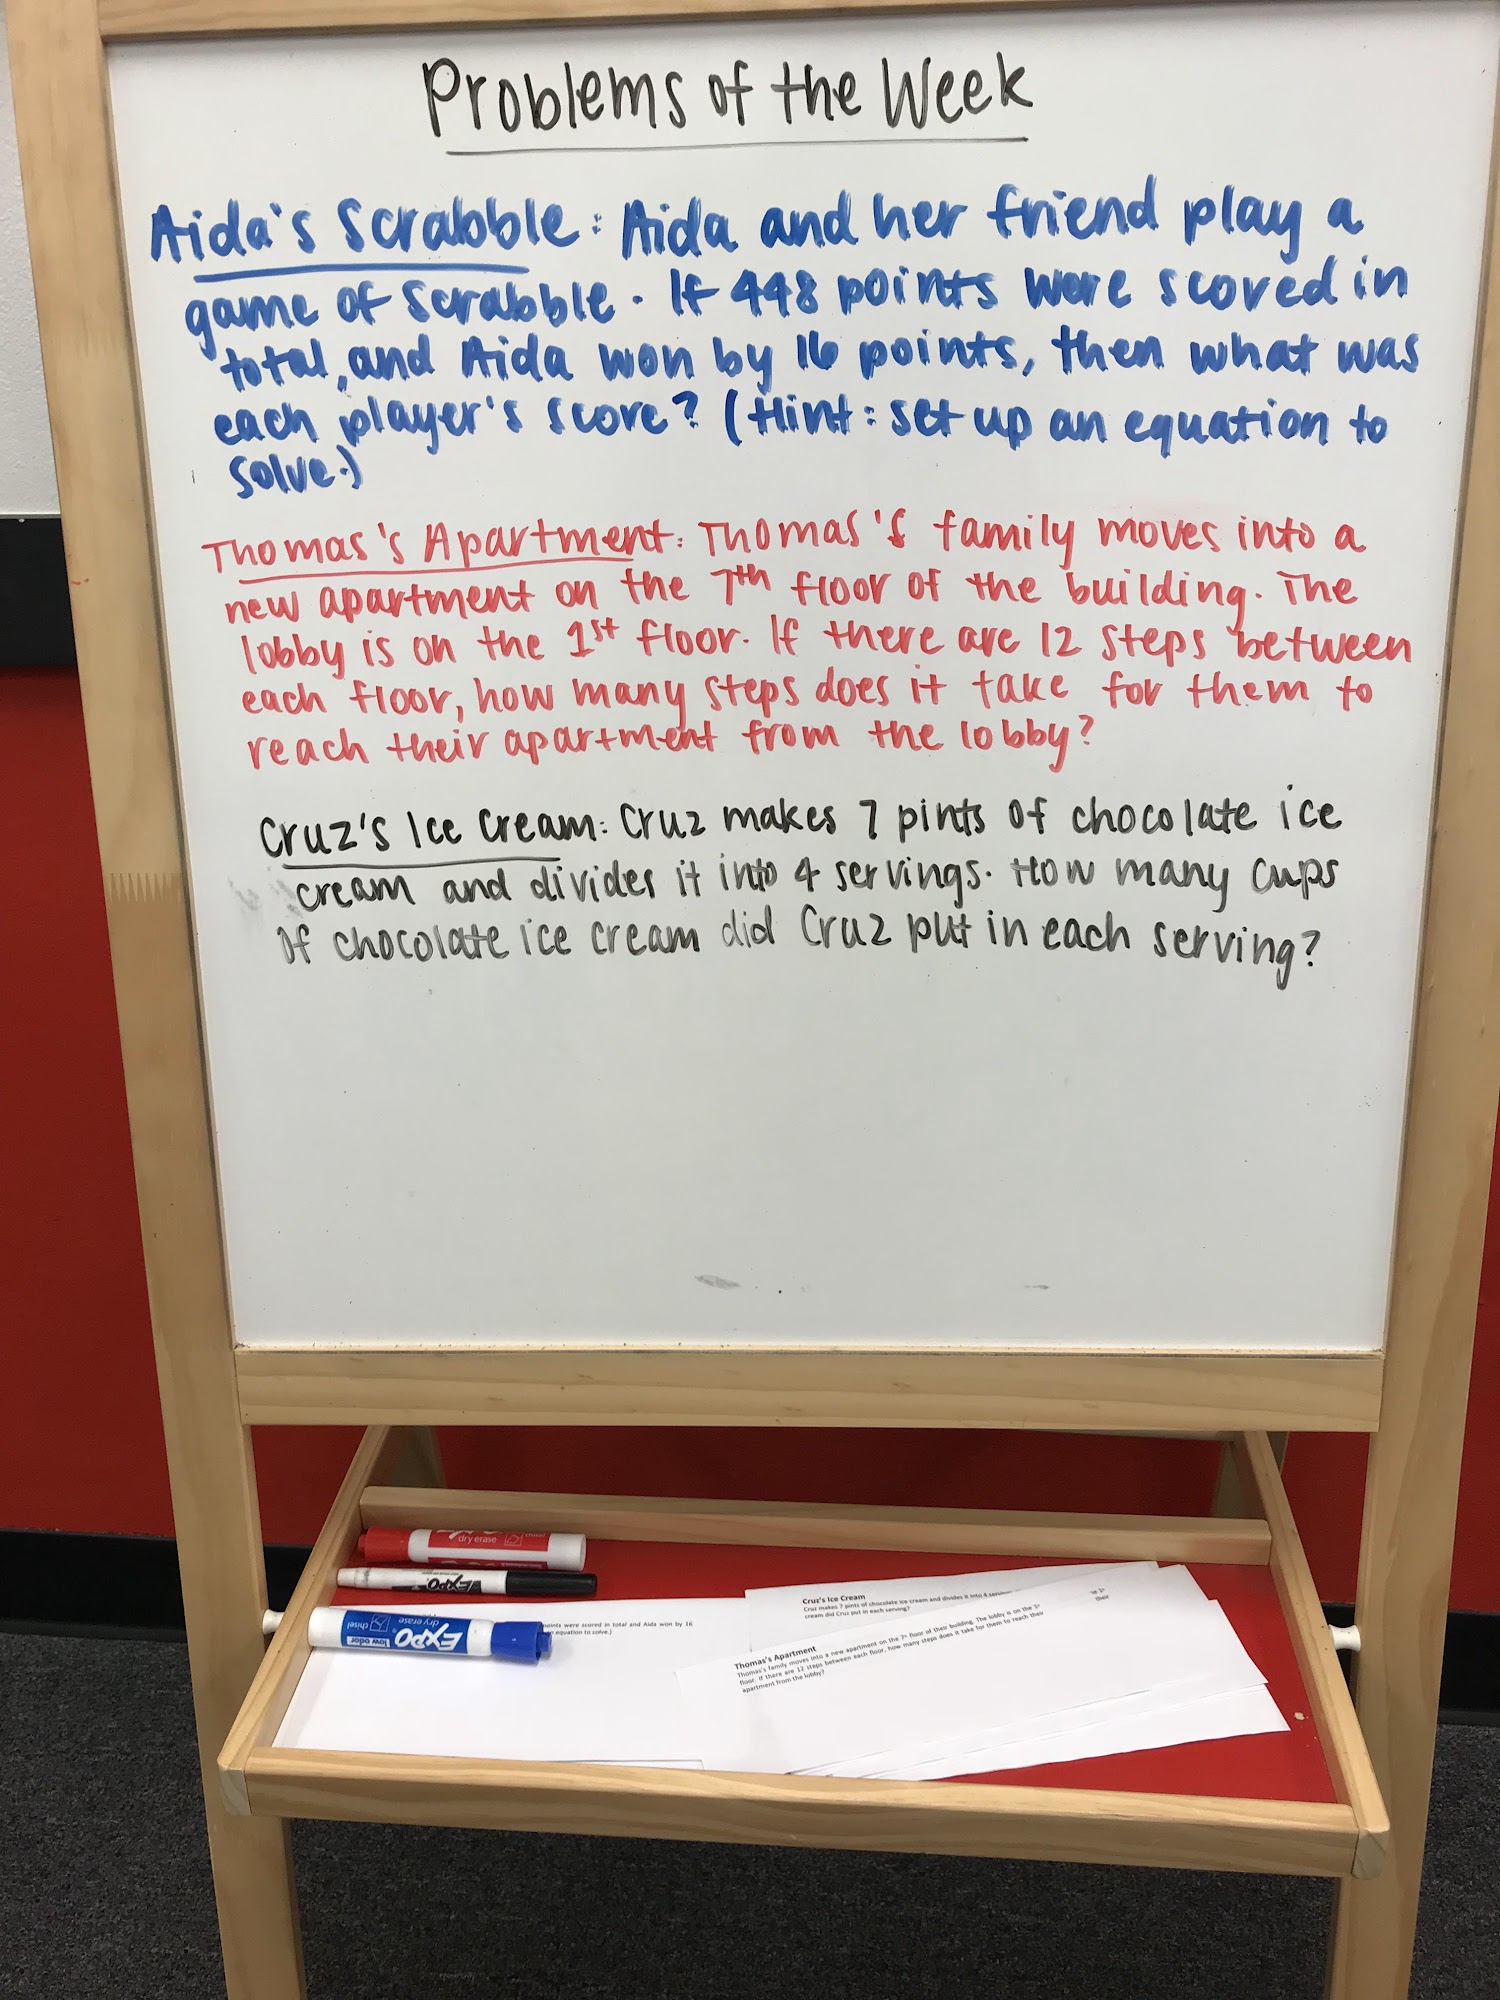 Problems of the Week
Aida's Scrabble: Aida and her friend play a
game of Scrabble. If 448 points were scored in
total, and Aida won by 16 points, then what was
each player's score? (Hint: set up an equation to
solve.)
Thomas's Apartment: Thomas's family moves into a
new apartment on the 7th floor of the building. The
lobby is on the 1st floor. If there are 12 steps between
each floor, how many steps does it take for them to
reach their apartment from the lobby?
Cruz's Ice Cream: Cruz makes 7 pints of chocolate ice
cream and divides it into 4 servings. How many cups
of chocolate ice cream did Cruz put in each serving?
dry erase
EXPO
EXPO
dry erase
chisel
low odor
points were scored in total and Aida won by 16
equation to solve.)
Cruz's Ice Cream
Cruz makes 7 pints of chocolate ice cream and divides it into 4
cream did Cruz put in each serving?
Thomas's Apartment
Thomas's family moves into a new apartment on the 7th floor of their building. The lobby is on the 1st
floor. If there are 12 steps between each floor, how many steps does it take for them to reach their
apartment from the lobby?
their